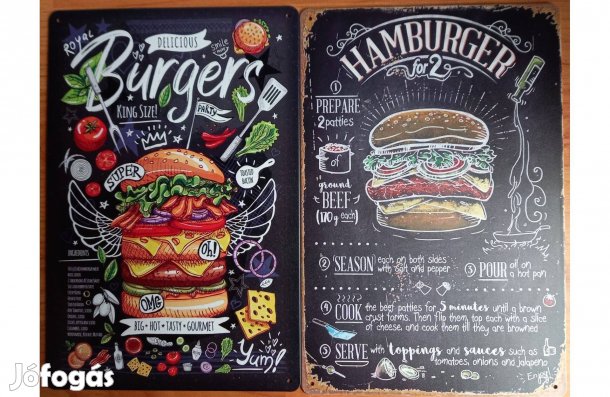 Royal
DELICIOUS
smile
Burgers
KING SIZE!
PARTY
SUPER
TOASTED
BACON
Oh!
INGREDIENTS
OMG
BIG • HOT • TASTY • GOURMET
Yum!
HAMBURGER
for 2
1
PREPARE
2 patties
of
ground
BEEF
(170g each)
2 SEASON each on both sides
with salt and pepper
3 POUR oil on
a hot pan
4 COOK the beef patties for 5 minutes until a brown
crust forms. Then flip them, top each with a slice
of cheese, and cook them till they are browned
5 SERVE with toppings and sauces such as
tomatoes, onions and jalapeno
Enjoy!
Jófogás